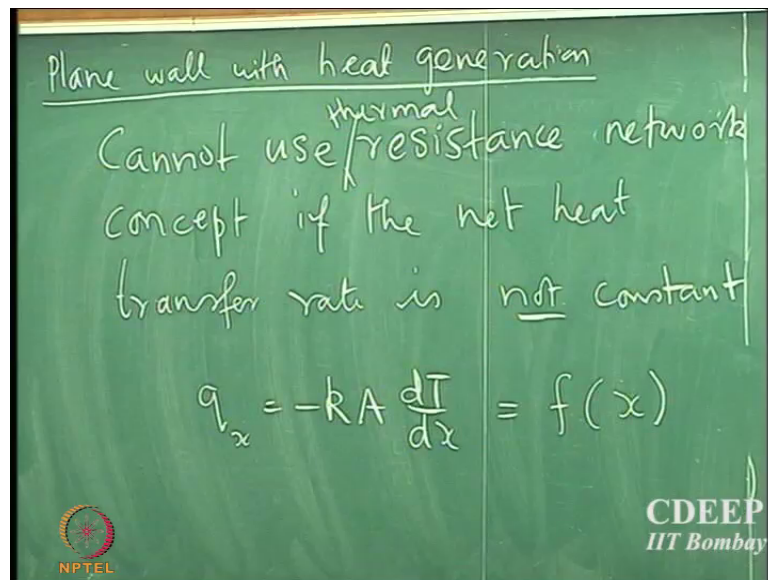 Plane wall with heat generation
thermal
Cannot use resistance network
concept if the net heat
transfer rate is not constant
q_x = -kA dT/dx = f(x)
CDEEP
IIT Bombay
NPTEL